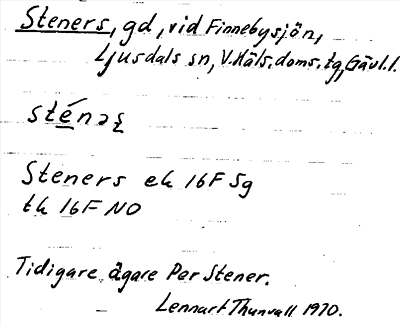 Steners, gd, vid Finnebysjön,
Ljusdals sn, V. Häls. doms. tg, Gävl. l.
sténəʂ
Steners ek 16F Sg
tk 16F NO
Tidigare ägare Per Stener.
Lennart Thunvall 1970.